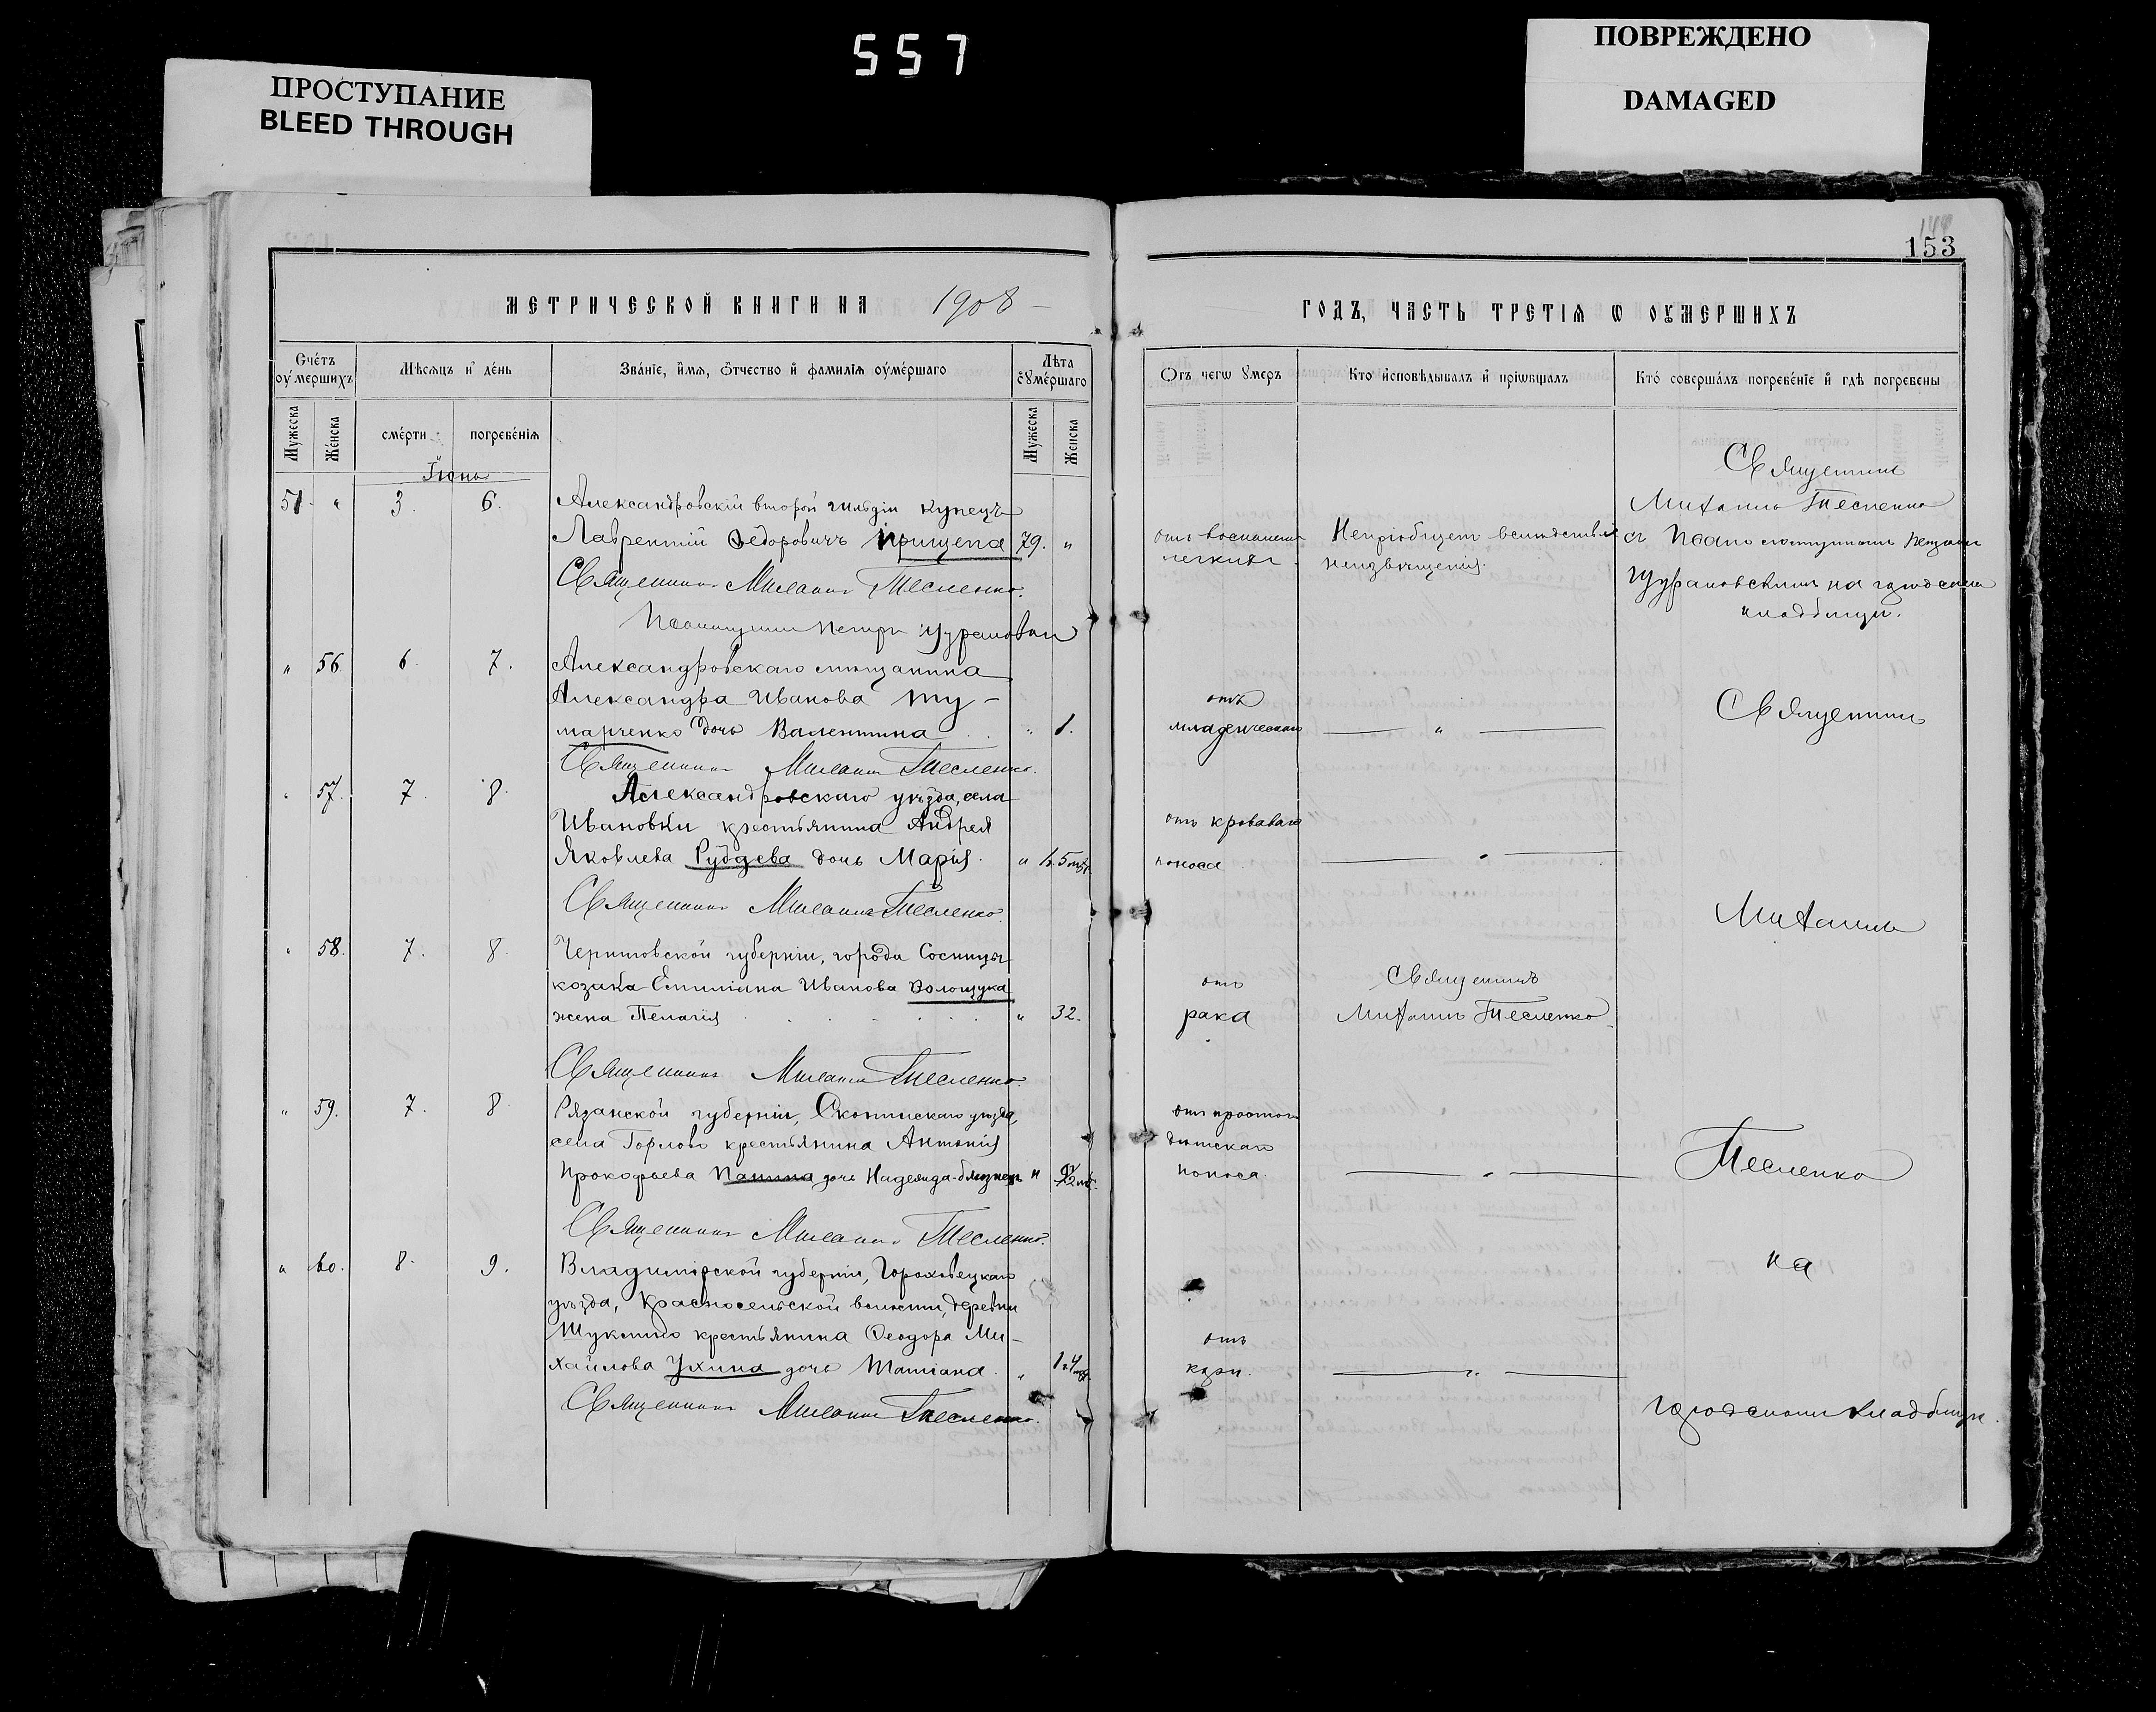 557
ПРОСТУПАНИЕ
BLEED THROUGH
ПОВРЕЖДЕНО
DAMAGED
153
МЕТРИЧЕСКОЙ КНИГИ НА 1908
ГОДЪ, ЧАСТЬ ТРЕТІѦ Ѡ ОУМЕРШИХЪ
Счетъ оумершихъ
Мѣсяцъ и день
Званіе, имя, отчество и фамилія оумершаго
Лѣта оумершаго
Отъ чегѡ умеръ
Кто исповѣдывалъ и пріѡбщалъ
Кто совершалъ погребеніе и гдѣ погребены
Мужеска
Женска
смерти
погребенія
Мужеска
Женска
Іюнь
51 " 3. 6. Александровскій второй гильдіи купецъ
Лаврентій Ѳедоровичъ Прищепа 79. "
Священникъ Михаилъ Тесленко.
Псаломщикъ Петръ
отъ воспаленія
легкихъ
Непріобщенъ вслѣдствіе
неизвѣщенія.
Священникъ
Михаилъ Тесленко
съ
на городскомъ
кладбищѣ.
" 56 6. 7. Александровскаго мѣщанина
Александра Иванова Ту-
марченко дочь Валентина " 1.
Священникъ Михаилъ Тесленко.
отъ
младенческой
"
Священникъ
" 57. 7. 8. Александровскаго уѣзда, села
Ивановки крестьянина Андрея
Яковлева Рудаева дочь Марія. "
Священникъ Михаилъ Тесленко.
отъ кроваваго
поноса
"
Михаилъ
" 58. 7. 8. Черниговской губерніи, города Сосницы
козака Емиліана Иванова Волощука
жена Пелагія " 32.
Священникъ Михаилъ Тесленко.
отъ
рака
Священникъ
Михаилъ Тесленко.
" 59. 7. 8. Рязанской губерніи, Скопинскаго уѣзда,
села Горлово крестьянина Антонія
Прокофьева Панина дочь Надежда-близнецъ "
Священникъ Михаилъ Тесленко.
отъ простого
дѣтскаго
поноса.
"
Тесленко
" 60. 8. 9. Владимірской губерніи, Гороховецкаго
уѣзда, Красносельской волости, деревни
Шуклино крестьянина Ѳеодора Ми-
хайлова Ухина дочь Татіана. "
Священникъ Михаилъ Тесленко.
отъ
кори.
"
на
городскомъ кладбищѣ.